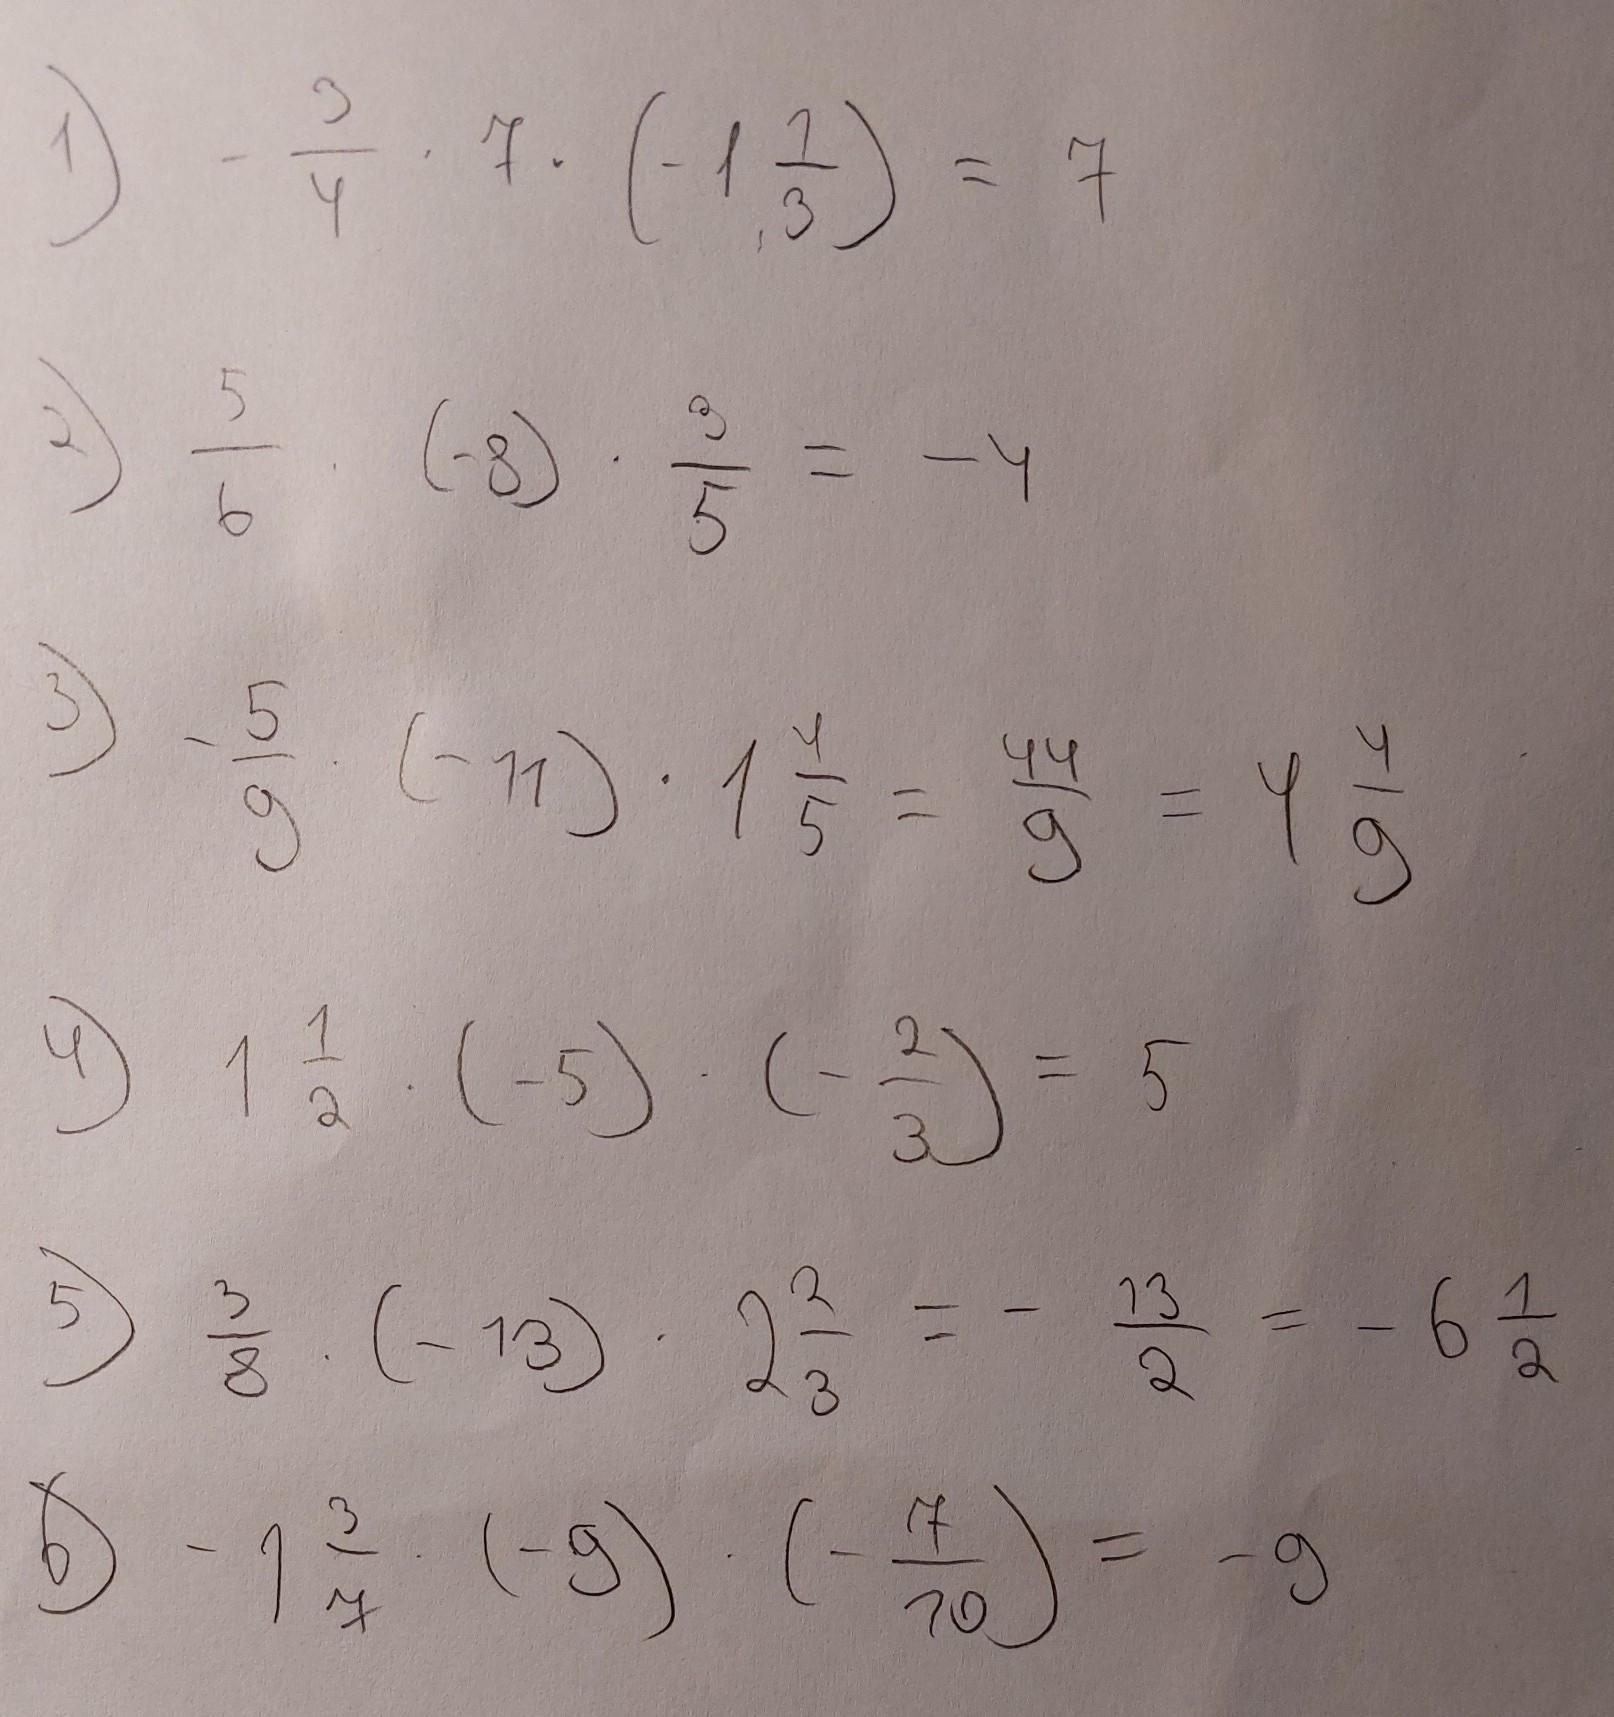 1) - 3/4 · 7 · (-1 1/3) = 7
2) 5/6 · (-8) · 3/5 = -4
3) - 5/9 · (-11) · 1 4/5 = 44/9 = 4 4/9
4) 1 1/2 · (-5) · (- 2/3) = 5
5) 3/8 · (-13) · 2 2/3 = - 13/2 = - 6 1/2
6) - 1 3/7 · (-9) · (- 7/10) = -9